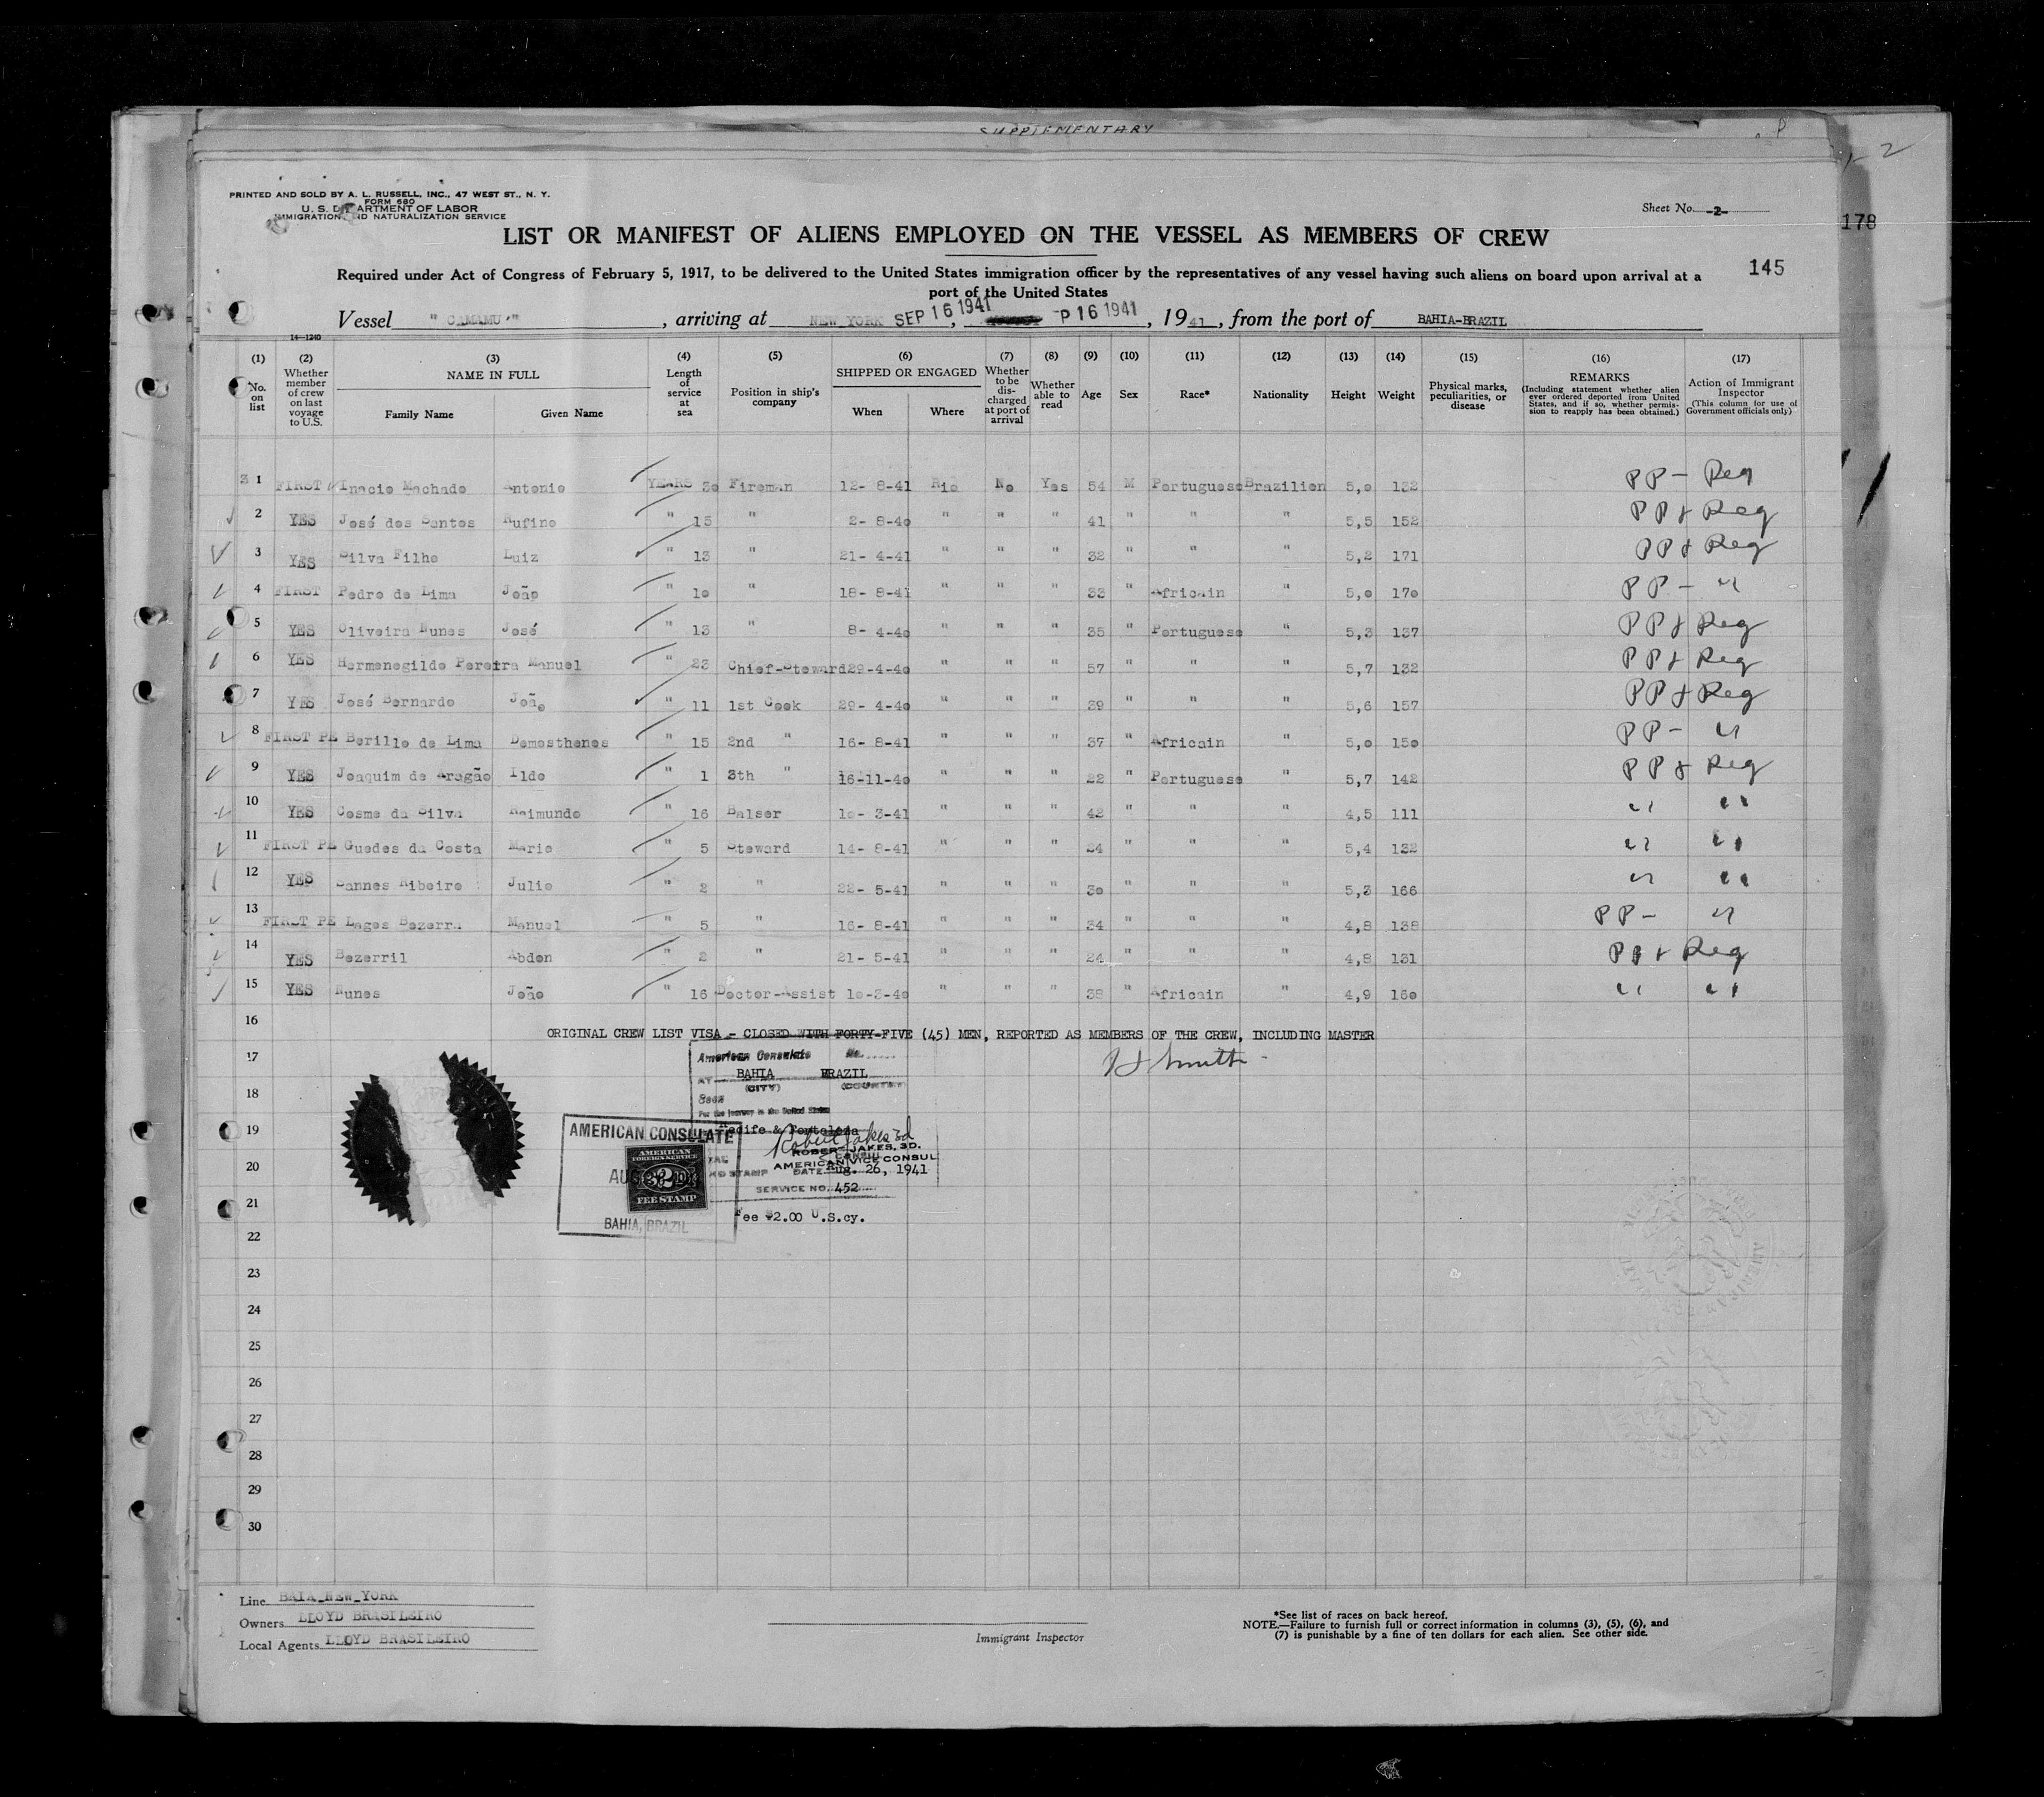 SUPPLEMENTARY
2
PRINTED AND SOLD BY A. L. RUSSELL, INC., 47 WEST ST., N. Y.
FORM 680
U. S. DEPARTMENT OF LABOR
IMMIGRATION AND NATURALIZATION SERVICE
Sheet No. -2-
178
LIST OR MANIFEST OF ALIENS EMPLOYED ON THE VESSEL AS MEMBERS OF CREW
145
Required under Act of Congress of February 5, 1917, to be delivered to the United States immigration officer by the representatives of any vessel having such aliens on board upon arrival at a
port of the United States
Vessel " CAMAMU'" , arriving at NEW YORK SEP 16 1941, P 16 1941, 1941, from the port of BAHIA-BRAZIL
14-1240
(1) (2) (3) (4) (5) (6) (7) (8) (9) (10) (11) (12) (13) (14) (15) (16) (17)
No. on list
Whether member of crew on last voyage to U.S.
NAME IN FULL
Family Name Given Name
Length of service at sea
Position in ship's company
SHIPPED OR ENGAGED
When Where
Whether to be discharged at port of arrival
Whether able to read
Age Sex Race* Nationality Height Weight
Physical marks, peculiarities, or disease
REMARKS
(Including statement whether alien ever ordered deported from United States, and if so, whether permission to reapply has been obtained.)
Action of Immigrant Inspector
(This column for use of Government officials only)
1 FIRST Inacio Machado Antonio YEARS 30 Fireman 12- 8-41 Rio No Yes 54 M Portuguese Brazilien 5,0 132 PP - Reg
2 YES José dos Santos Rufino " 15 " 2- 8-40 " " " 41 " " " 5,5 152 PP & Reg
3 YES Silva Filho Luiz " 13 " 21- 4-41 " " " 32 " " " 5,2 171 PP & Reg
4 FIRST Pedro de Lima João " 10 " 18- 8-41 " " " 33 " Africain " 5,0 170 PP - "
5 YES Oliveira Nunes José " 13 " 8- 4-40 " " " 35 " Portuguese " 5,3 137 PP & Reg
6 YES Hermenegildo Pereira Manuel " 23 Chief-Steward 29-4-40 " " " 57 " " " 5,7 132 PP & Reg
7 YES José Bernardo João " 11 1st Cook 29- 4-40 " " " 39 " " " 5,6 157 PP & Reg
8 FIRST PE Berillo de Lima Demosthenes " 15 2nd " 16- 8-41 " " " 37 " Africain " 5,0 150 PP - "
9 YES Joaquim de Aragão Ildo " 1 3th " 16-11-40 " " " 22 " Portuguese " 5,7 142 PP & Reg
10 YES Cosme da Silva Raimundo " 16 Balser 10- 3-41 " " " 42 " " " 4,5 111 " "
11 FIRST PE Guedes da Costa Mario " 5 Steward 14- 8-41 " " " 24 " " " 5,4 132 " "
12 YES Sannes Ribeiro Julio " 2 " 22- 5-41 " " " 30 " " " 5,3 166 " "
13 FIRST PE Lages Bezerra Manuel " 5 " 16- 8-41 " " " 34 " " " 4,8 138 PP - "
14 YES Bezerril Abdon " 2 " 21- 5-41 " " " 24 " " " 4,8 131 PP & Reg
15 YES Nunes João " 16 Doctor-Assist 10-3-40 " " " 38 " Africain " 4,9 160 " "
16
ORIGINAL CREW LIST VISA - CLOSED WITH FORTY-FIVE (45) MEN, REPORTED AS MEMBERS OF THE CREW, INCLUDING MASTER
17
American Consulate No.
AT BAHIA BRAZIL
(CITY) (COUNTRY)
18
Seen
For the journey to the United States
19
Recife & Fortaleza
AMERICAN CONSULATE
Robert Jakes 3d
ROBERT JAKES, 3D.
AMERICAN VICE CONSUL
20
AMERICAN FOREIGN SERVICE
2
FEE STAMP
DATE Aug. 26, 1941
SERVICE NO. 452
21
BAHIA, BRAZIL
Fee $2.00 U.S.cy.
22
23
24
25
26
27
28
29
30
Line BAIA-NEW-YORK
Owners LLOYD BRASILEIRO
Local Agents LLOYD BRASILEIRO
Immigrant Inspector
*See list of races on back hereof.
NOTE.—Failure to furnish full or correct information in columns (3), (5), (6), and
(7) is punishable by a fine of ten dollars for each alien. See other side.